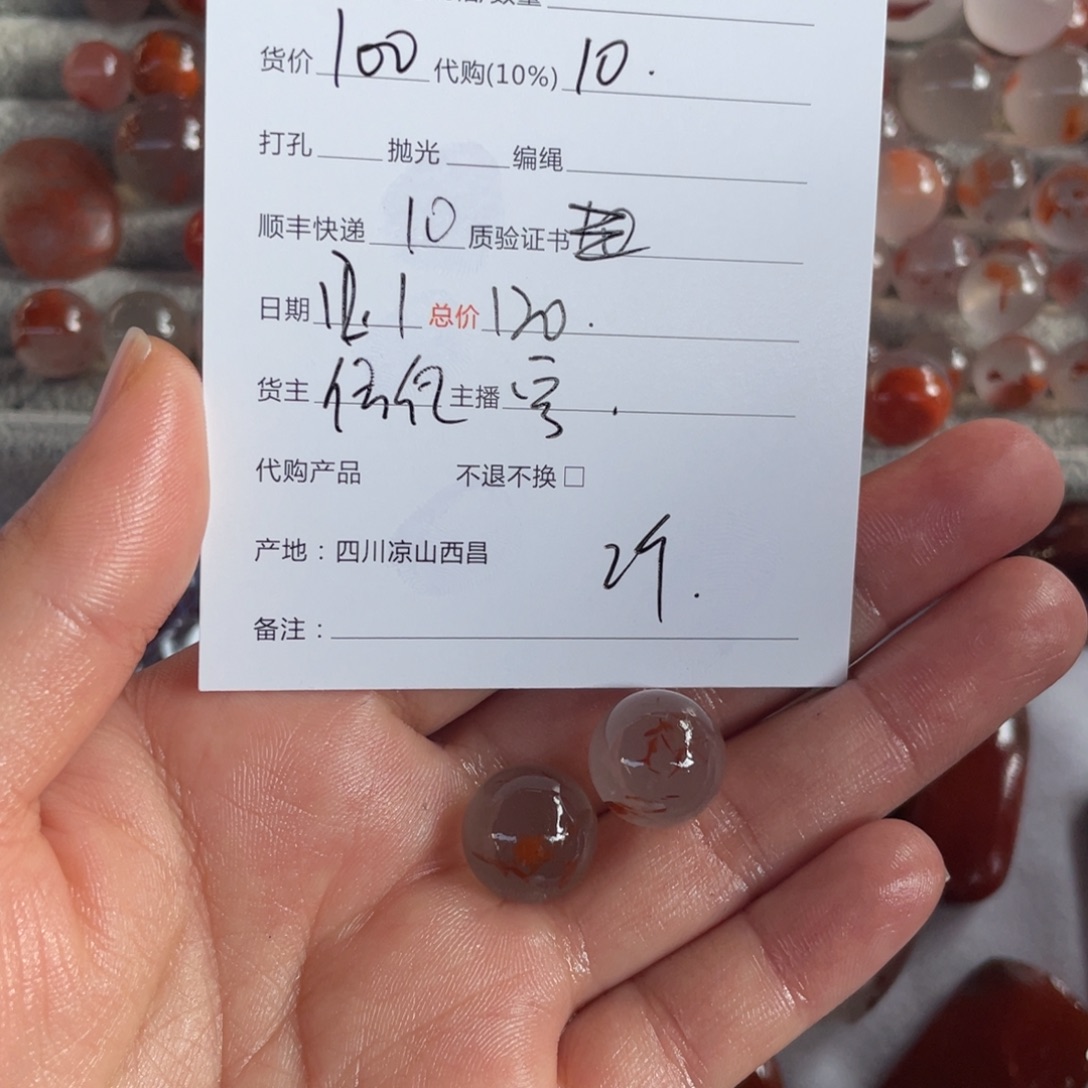 货价 100 代购(10%) 10.
打孔 抛光 编绳
顺丰快递 10 质验证书
日期 12.1 总价 120.
货主 主播
代购产品 不退不换□
产地：四川凉山西昌
备注：